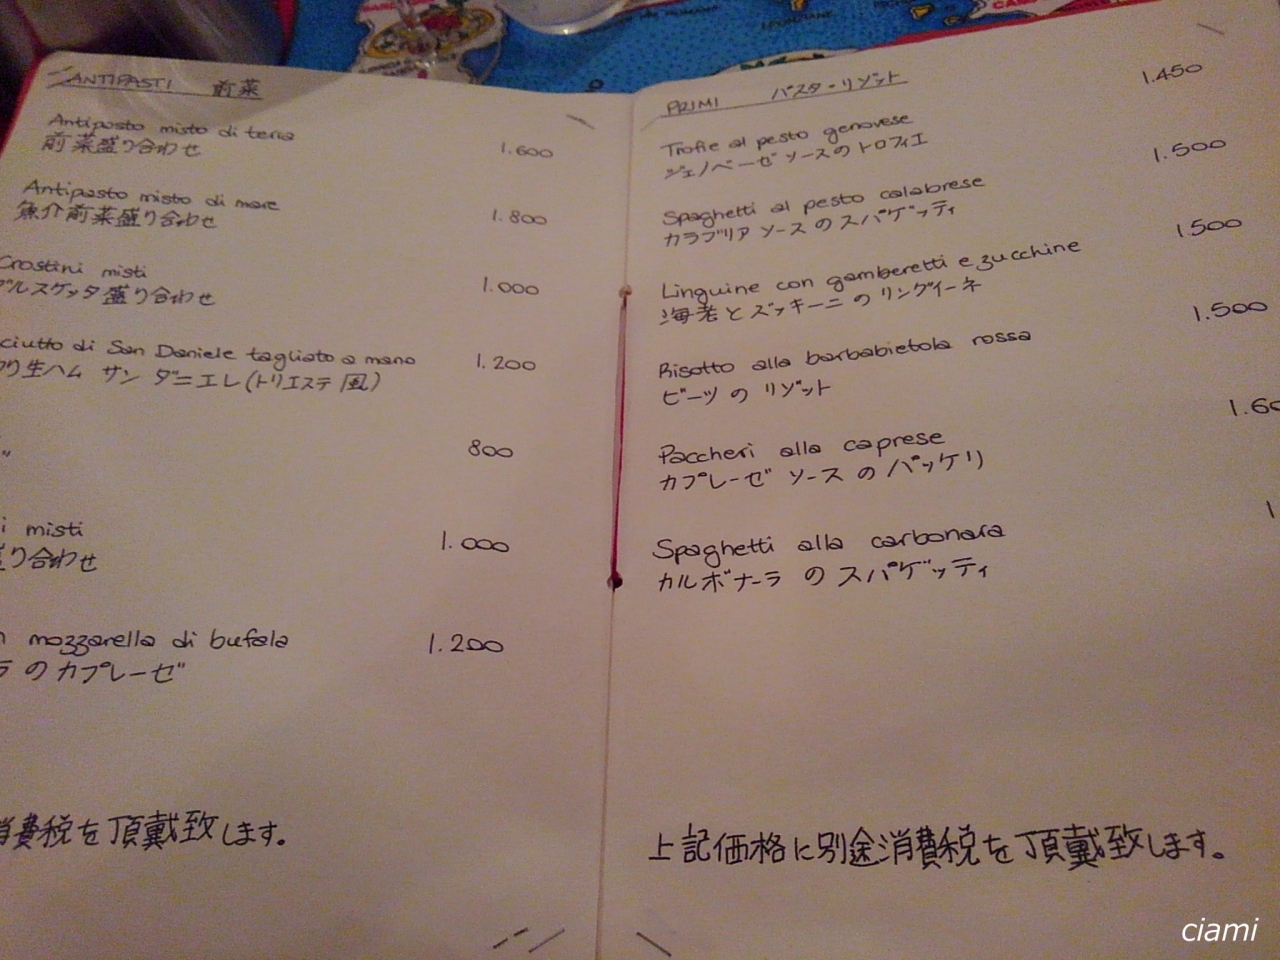 ANTIPASTI 前菜
Antiposto misto di terra
前菜盛り合わせ 1.600
Antipasto misto di mare
魚介前菜盛り合わせ 1.800
Crostini misti
ブルスケッタ盛り合わせ 1.000
ciutto di San Daniele tagliato a mano 1.200
り生ハム サン ダニエレ(トリエステ風)
800
〃
i misti 1.000
り合わせ
mozzarella di bufala 1.200
ラ の カプレーゼ
消費税を頂戴致します。
PRIMI パスタ・リゾット
1.450
Trofie al pesto genovese
ジェノベーゼ ソースの トロフィエ
1.500
Spaghetti al pesto calabrese
カラブリア ソース の スパゲッティ
1.500
Linguine con gamberetti e zucchine
海老 と ズッキーニ の リングイーネ
1.500
Risotto alla barbabietola rossa
ビーツ の リゾット
1.60
Paccheri alla caprese
カプレーゼ ソース の パッケリ
1
Spaghetti alla carbonara
カルボナーラ の スパゲッティ
上記価格に別途消費税を頂戴致します。
ciami